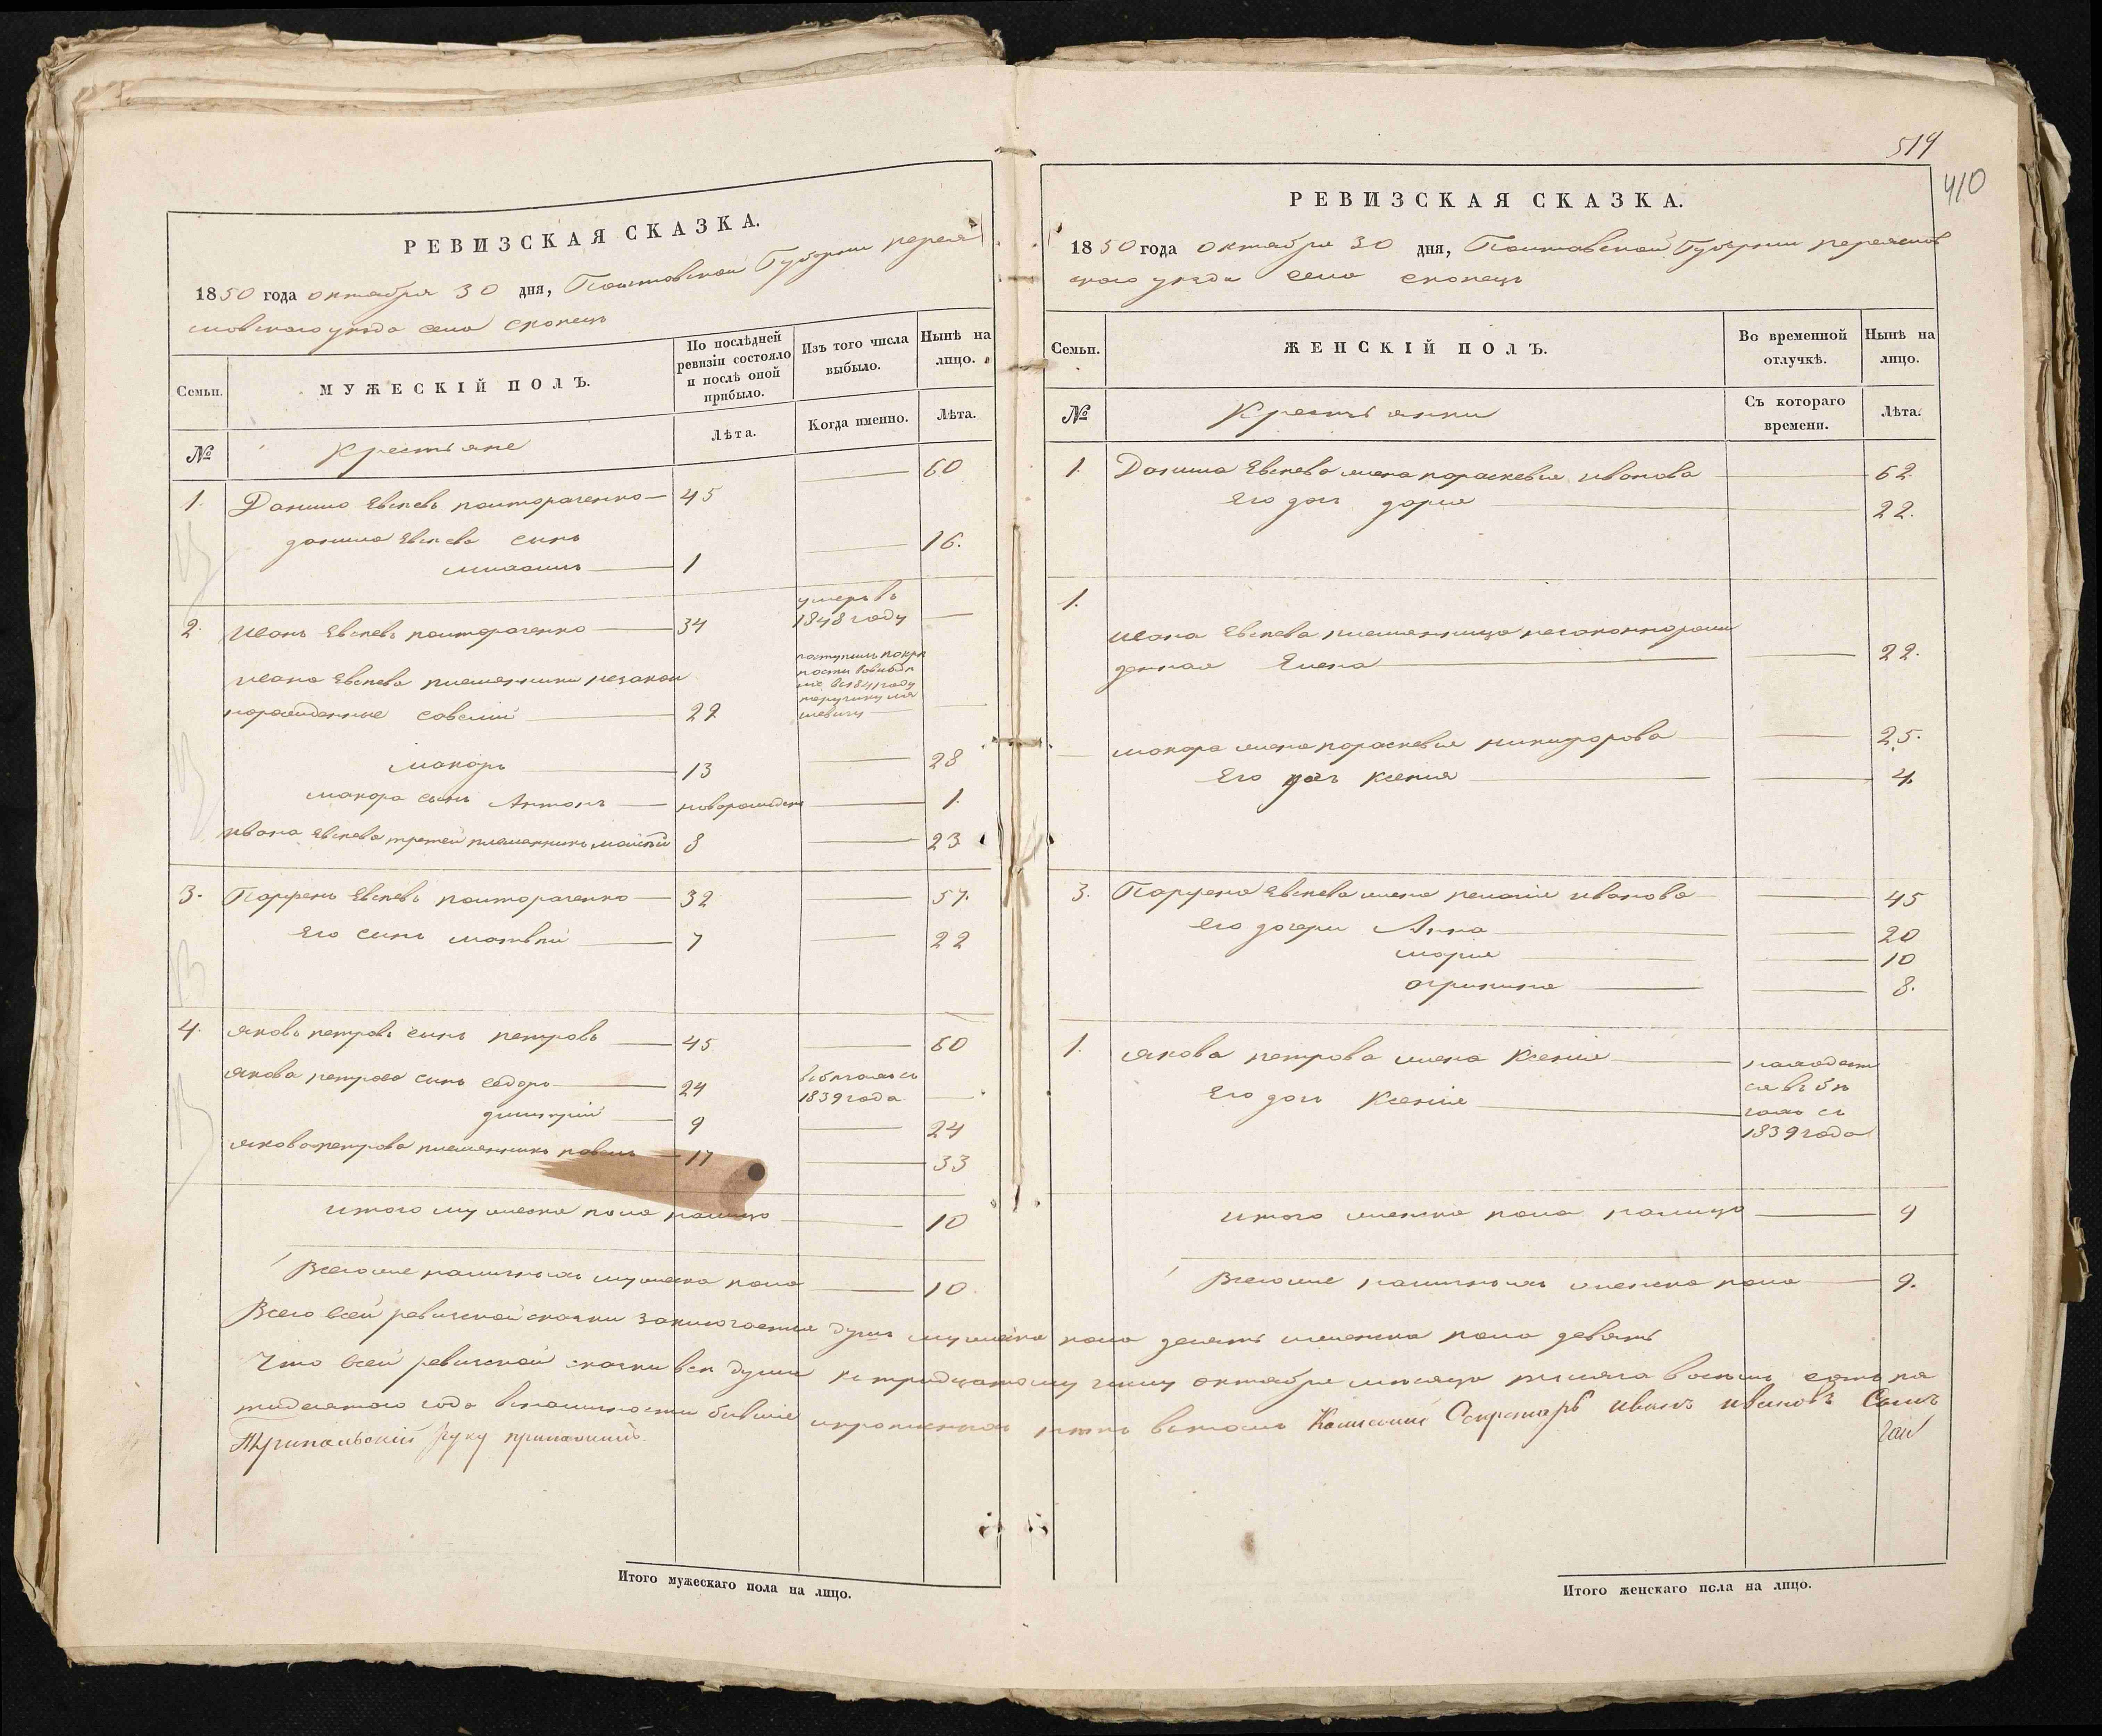 РЕВИЗСКАЯ СКАЗКА.
1850 года октября 30 дня, Полтавской Губернии перея
словского уезда села скопец
Семьи.
МУЖЕСКІЙ ПОЛЪ.
По послѣдней ревизіи состояло и послѣ оной прибыло.
Изъ того числа выбыло.
Нынѣ на лицо.
№
крестьяне
Лѣта.
Когда именно.
Лѣта.
1. Данило Евсеевъ полтораченко 45 60
данила Евсеева сынъ 16.
михаилъ 1
2. Иванъ Евсеевъ полтораченко 34 умеръ въ 1848 году
ивана Евсеева племянники незакон
норожденные савелий 22
макаръ 13 28
макара сынъ Антонъ новорожден 1.
ивана Евсеева третей племянникъ 8 23
3. Парфенъ Евсеевъ полтораченко 32 57.
Его сынъ матвѣй 7 22
4. яковъ петровъ сынъ петровъ 45 60
якова петрова сынъ сидоръ 24 въ бѣгахъ съ 1839 года
димитрій 9 24
якова петрова племянникъ павелъ 17 33
итого мужеска пола налицо 10
Всего же наличныхъ мужеска пола 10
Итого мужескаго пола на лицо.
514
410
РЕВИЗСКАЯ СКАЗКА.
1850 года октября 30 дня, Полтавской Губернии переяслов
ского уезда села скопец
Семьи.
ЖЕНСКІЙ ПОЛЪ.
Во временной отлучкѣ.
Нынѣ на лицо.
№
крестьянки
Съ котораго времени.
Лѣта.
1. Данила Евсеева жена параскевия иванова 62.
Его доч дария 22.
1.
ивана Евсеева племянница незаконнорож
денная Елена 22.
макара жена параскевия никифорова 25.
Его доч ксения 4
3. Парфена Евсеева жена пелагия иванова 45
Его дочери Анна 20
мария 10
агрипина 8.
1. якова петрова жена Ксения находит
ся въ бѣ
Его доч Ксения гахъ съ
1839 года
итого женска пола налицо 9
Всего же наличныхъ женска пола 9.
Всего всей ревизской сказки заключается душъ мужеска пола десять женска пола девять
Что всей ревизской сказки все души к тридцатому числу октября месяца тысяча восемь сотъ пя
тидесятого года в наличности бывшие и пропущенныхъ нетъ в томъ Секретарь иванъ ивановъ Сынъ
руку приложилъ
Итого женскаго пола на лицо.